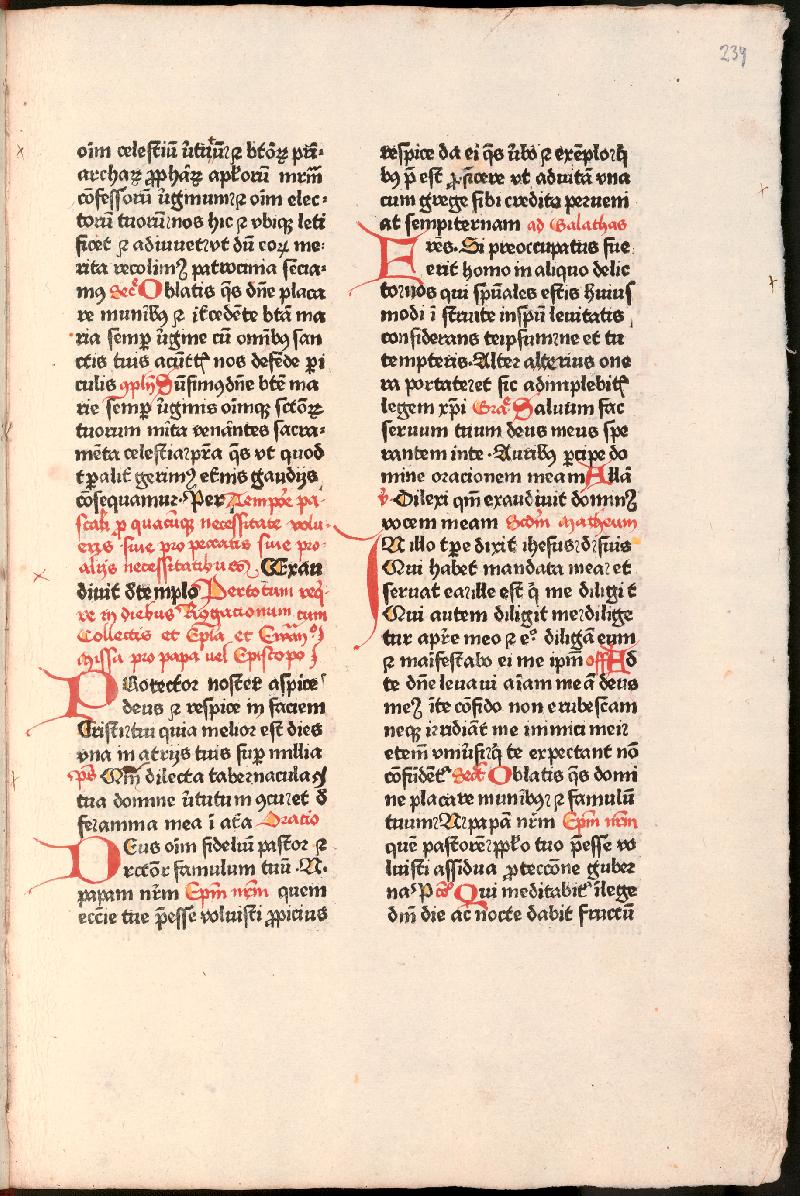 239
oīm celestiū v̄tutū ⁊ btōꝝ pr̄i-
archaꝝ ꝓphāꝝ aplorū mr̄m̄
cōfessorū v̄gīnum ⁊ oīm elec-
torū tuorū nos hic ⁊ vbiqꝫ leti
ficet ⁊ adiuuet vt dū eoꝝ me-
rita recolimꝰ patrocinia sēcia-
mꝰ Sec̄ Oblatis q̄s dn̄e placa
re munibꝰ ⁊ īt̄cedēte btā ma
ria semꝑ v̄gine cū omībꝰ san
ctis tuis a cūct̄ nos defēde ꝑi
culis ꝯpln̄ Sūsimꝰ dn̄e btē ma
rie semꝑ v̄ginis oīmqꝫ sctōꝝ
tuorum mīta venāntes sacra-
mēta celestia pr̄a q̄s vt quod
tꝑalit̄ gerimꝰ et̄nis gaudijs
cōsequamur Per Tempore pa-
scali ꝓ quacūqꝫ necessitate volu-
eris siue pro peccatis siue pro
alijs necessitatibus Exau
diuit de templo Per totum req̄-
re in diebus Rogacionum cum
Collectis et Epla et Ewāⁿ
Missa pro papa vel Episcopo
PRotector noster aspice
deus ⁊ respice in faciem
Cristi tui quia melior est dies
vna in atrijs tuis suꝑ millia
ps̄ Qm̄ dilecta tabernacula
tua domine v̄tutum ꝯcu et d̄
fe amma mea ī at̄a Oratio
DEus oīm fidelīū pastor ⁊
rector famulum tuū .N.
papam nr̄m Epm̄ nr̄m quem
eccīe tue p̄esse voluisti ꝓpicius
respice da ei q̄s v̄bo ⁊ exēplo q̄
bꝰ p̄est ꝓficere vt ad vitā vna
cum grege sibi credito perueni
at sempiternam ad Galathas
FRes. Si preoccupatus fue
erit homo in aliquo delic
to vos qui sp̄uales estis huius
modi ī struite in spū leuitatis
considerans teipsum ne et tu
tempteris. Alter alterius one
ra portate et sic adimplebit̄
legem xp̄i Gra Saluum fac
seruum tuum deus meus spe
rantem in te. Auribꝰ ꝑcipe do
mine oracionem meam Allā
v̄. Dilexi qm̄ exaudiuit dominꝰ
vocem meam Scdm̄ Matheum
IN illo tꝑe dixit ihesus d suis
Qui habet mandata mea et
seruat ea ille est q̄ me diligit
Qui autem diligit me dilige
tur a pr̄e meo ⁊ eᵒ diligā eum
⁊ maīfestabo ei me ip̄m off Ad
te dn̄e leuaui aīam meā deus
meꝰ ī te cōfido non erubescam
neqꝫ irridiāt me inimici mei
etem̄ vniūsi q̄ te expectant nō
cōfūdēt̄ Secr̄ Oblatis q̄s domi
ne placare munibꝰ ⁊ famulū
tuum N. papā nr̄m Epm̄ nr̄m
quē pastorē ppl̄o tuo p̄esse vo
luisti assidua ꝓteccōne guber
na P cō Qui meditabit̄ ī lege
dn̄i die ac nocte dabit fructū